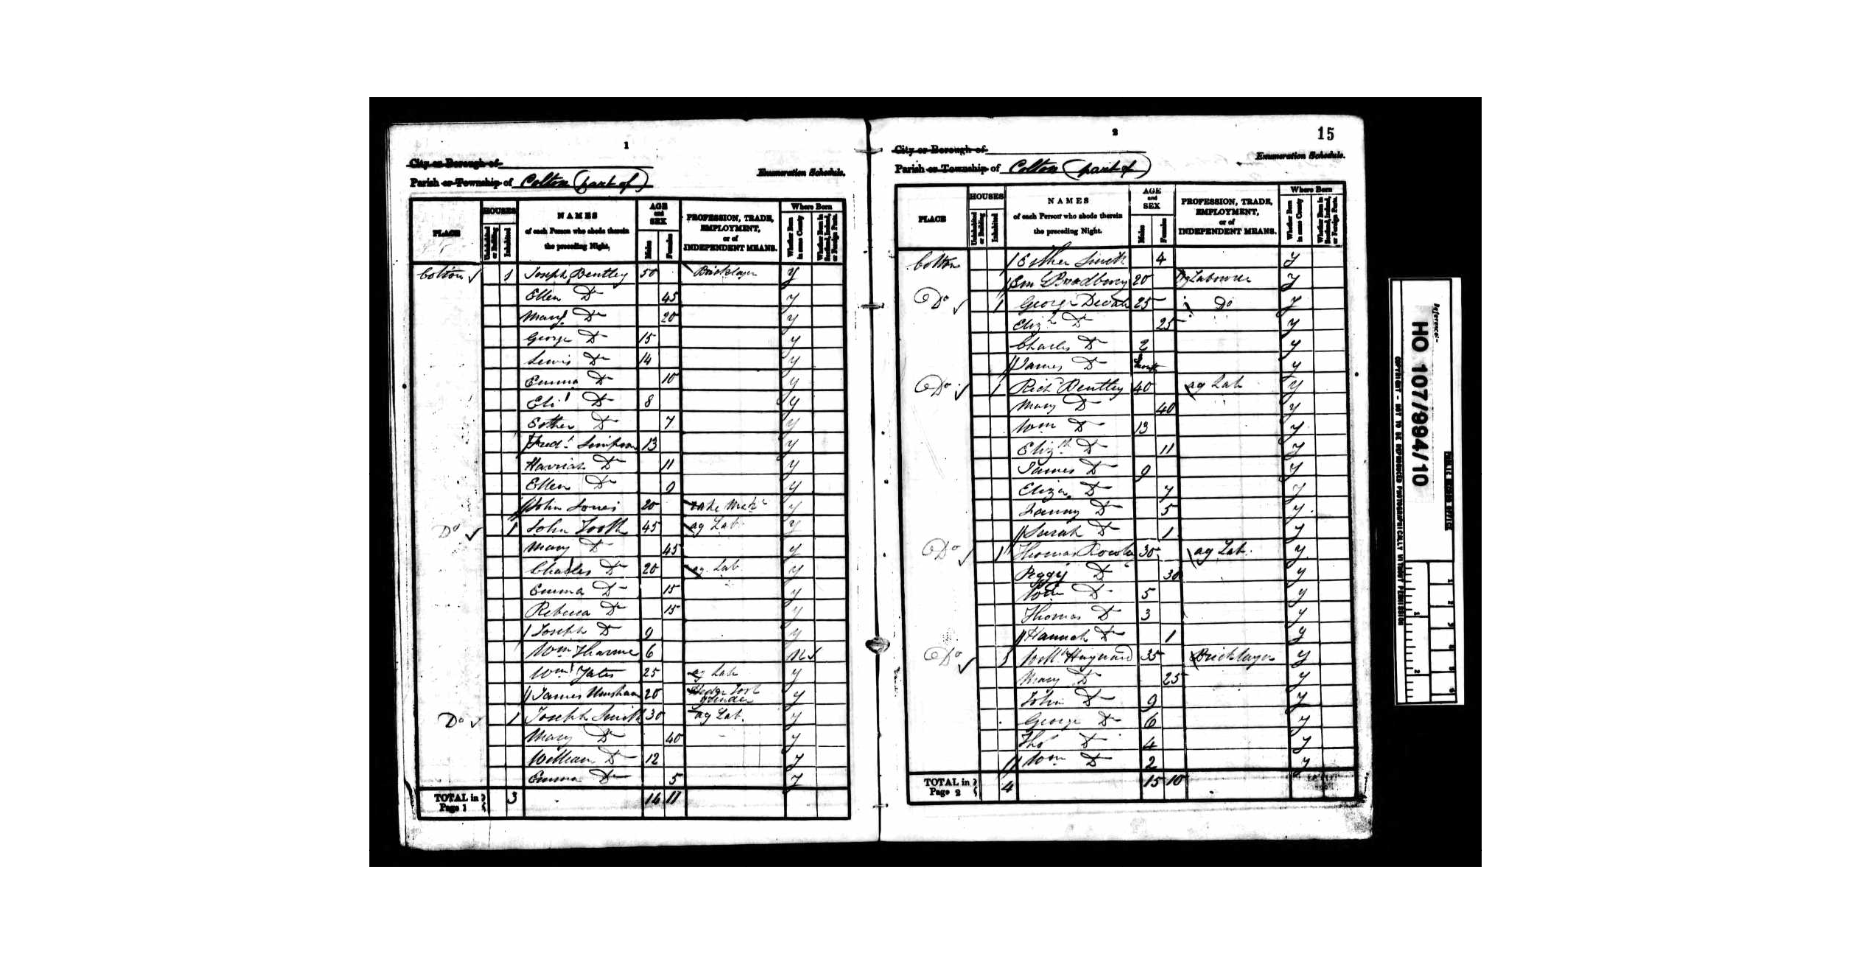 1
City or Borough of
Parish or Township of Colton (part of)
Enumeration Schedule.
PLACE
HOUSES
Uninhabited or Building
Inhabited
NAMES
of each Person who abode therein
the preceding Night.
AGE
and
SEX
Males
Females
PROFESSION, TRADE,
EMPLOYMENT,
or of
INDEPENDENT MEANS.
Where Born
Whether Born in same County
Whether Born in Scotland, Ireland, or Foreign Parts.
Colton 1 Joseph Bentley 50 Bricklayer y
Ellen Do 45 y
Mary Do 20 y
George Do 15 y
Lewis Do 14 y
Emma Do 10 y
Eli Do 8 y
Esther Do 7 y
Fredk Simpson 13 y
Harriah Do 11 y
Ellen Do 9 y
John Jones 20 y
Do 1 John Tooth 45 ag Lab y
Mary Do 45 y
Charles Do 20 ag Lab y
Emma Do 15 y
Rebecca Do 15 y
Joseph Do 9 y
Wm Tharme 6 N
Wm Yates 25 ag Lab y
James 20 y
Do 1 Joseph Smith 30 ag Lab. y
Mary Do 40 y
William Do 12 y
Emma Do 5 y
TOTAL in Page 1 3 14 11
2
15
City or Borough of
Parish or Township of Colton (part of)
Enumeration Schedule.
PLACE
HOUSES
Uninhabited or Building
Inhabited
NAMES
of each Person who abode therein
the preceding Night.
AGE
and
SEX
Males
Females
PROFESSION, TRADE,
EMPLOYMENT,
or of
INDEPENDENT MEANS.
Where Born
Whether Born in same County
Whether Born in Scotland, Ireland, or Foreign Parts.
Colton Esther Smith 4 y
Bradbury 20 Labourer y
Do 1 George 25 Do y
Elizth Do 25 y
Charles Do 2 y
James Do y
Do 1 Richd Bentley 40 ag Lab y
Mary Do 40 y
Wm Do 13 y
Elizth Do 11 y
James Do 9 y
Eliza Do 7 y
Fanny Do 5 y
Sarah Do 1 y
Do 1 Thomas 30 ag Lab. y
Peggy Do 30 y
Wm Do 5 y
Thomas Do 3 y
Hannah Do 1 y
Do 1 Willm Haywood 35 Bricklayer y
Mary Do 25 y
John Do 9 y
George Do 6 y
Thos Do 4 y
Wm Do 2 y
TOTAL in Page 2 4 15 10
Reference:-
HO 107/994/10
PUBLIC RECORD OFFICE
COPYRIGHT - NOT TO BE REPRODUCED PHOTOGRAPHICALLY WITHOUT PERMISSION